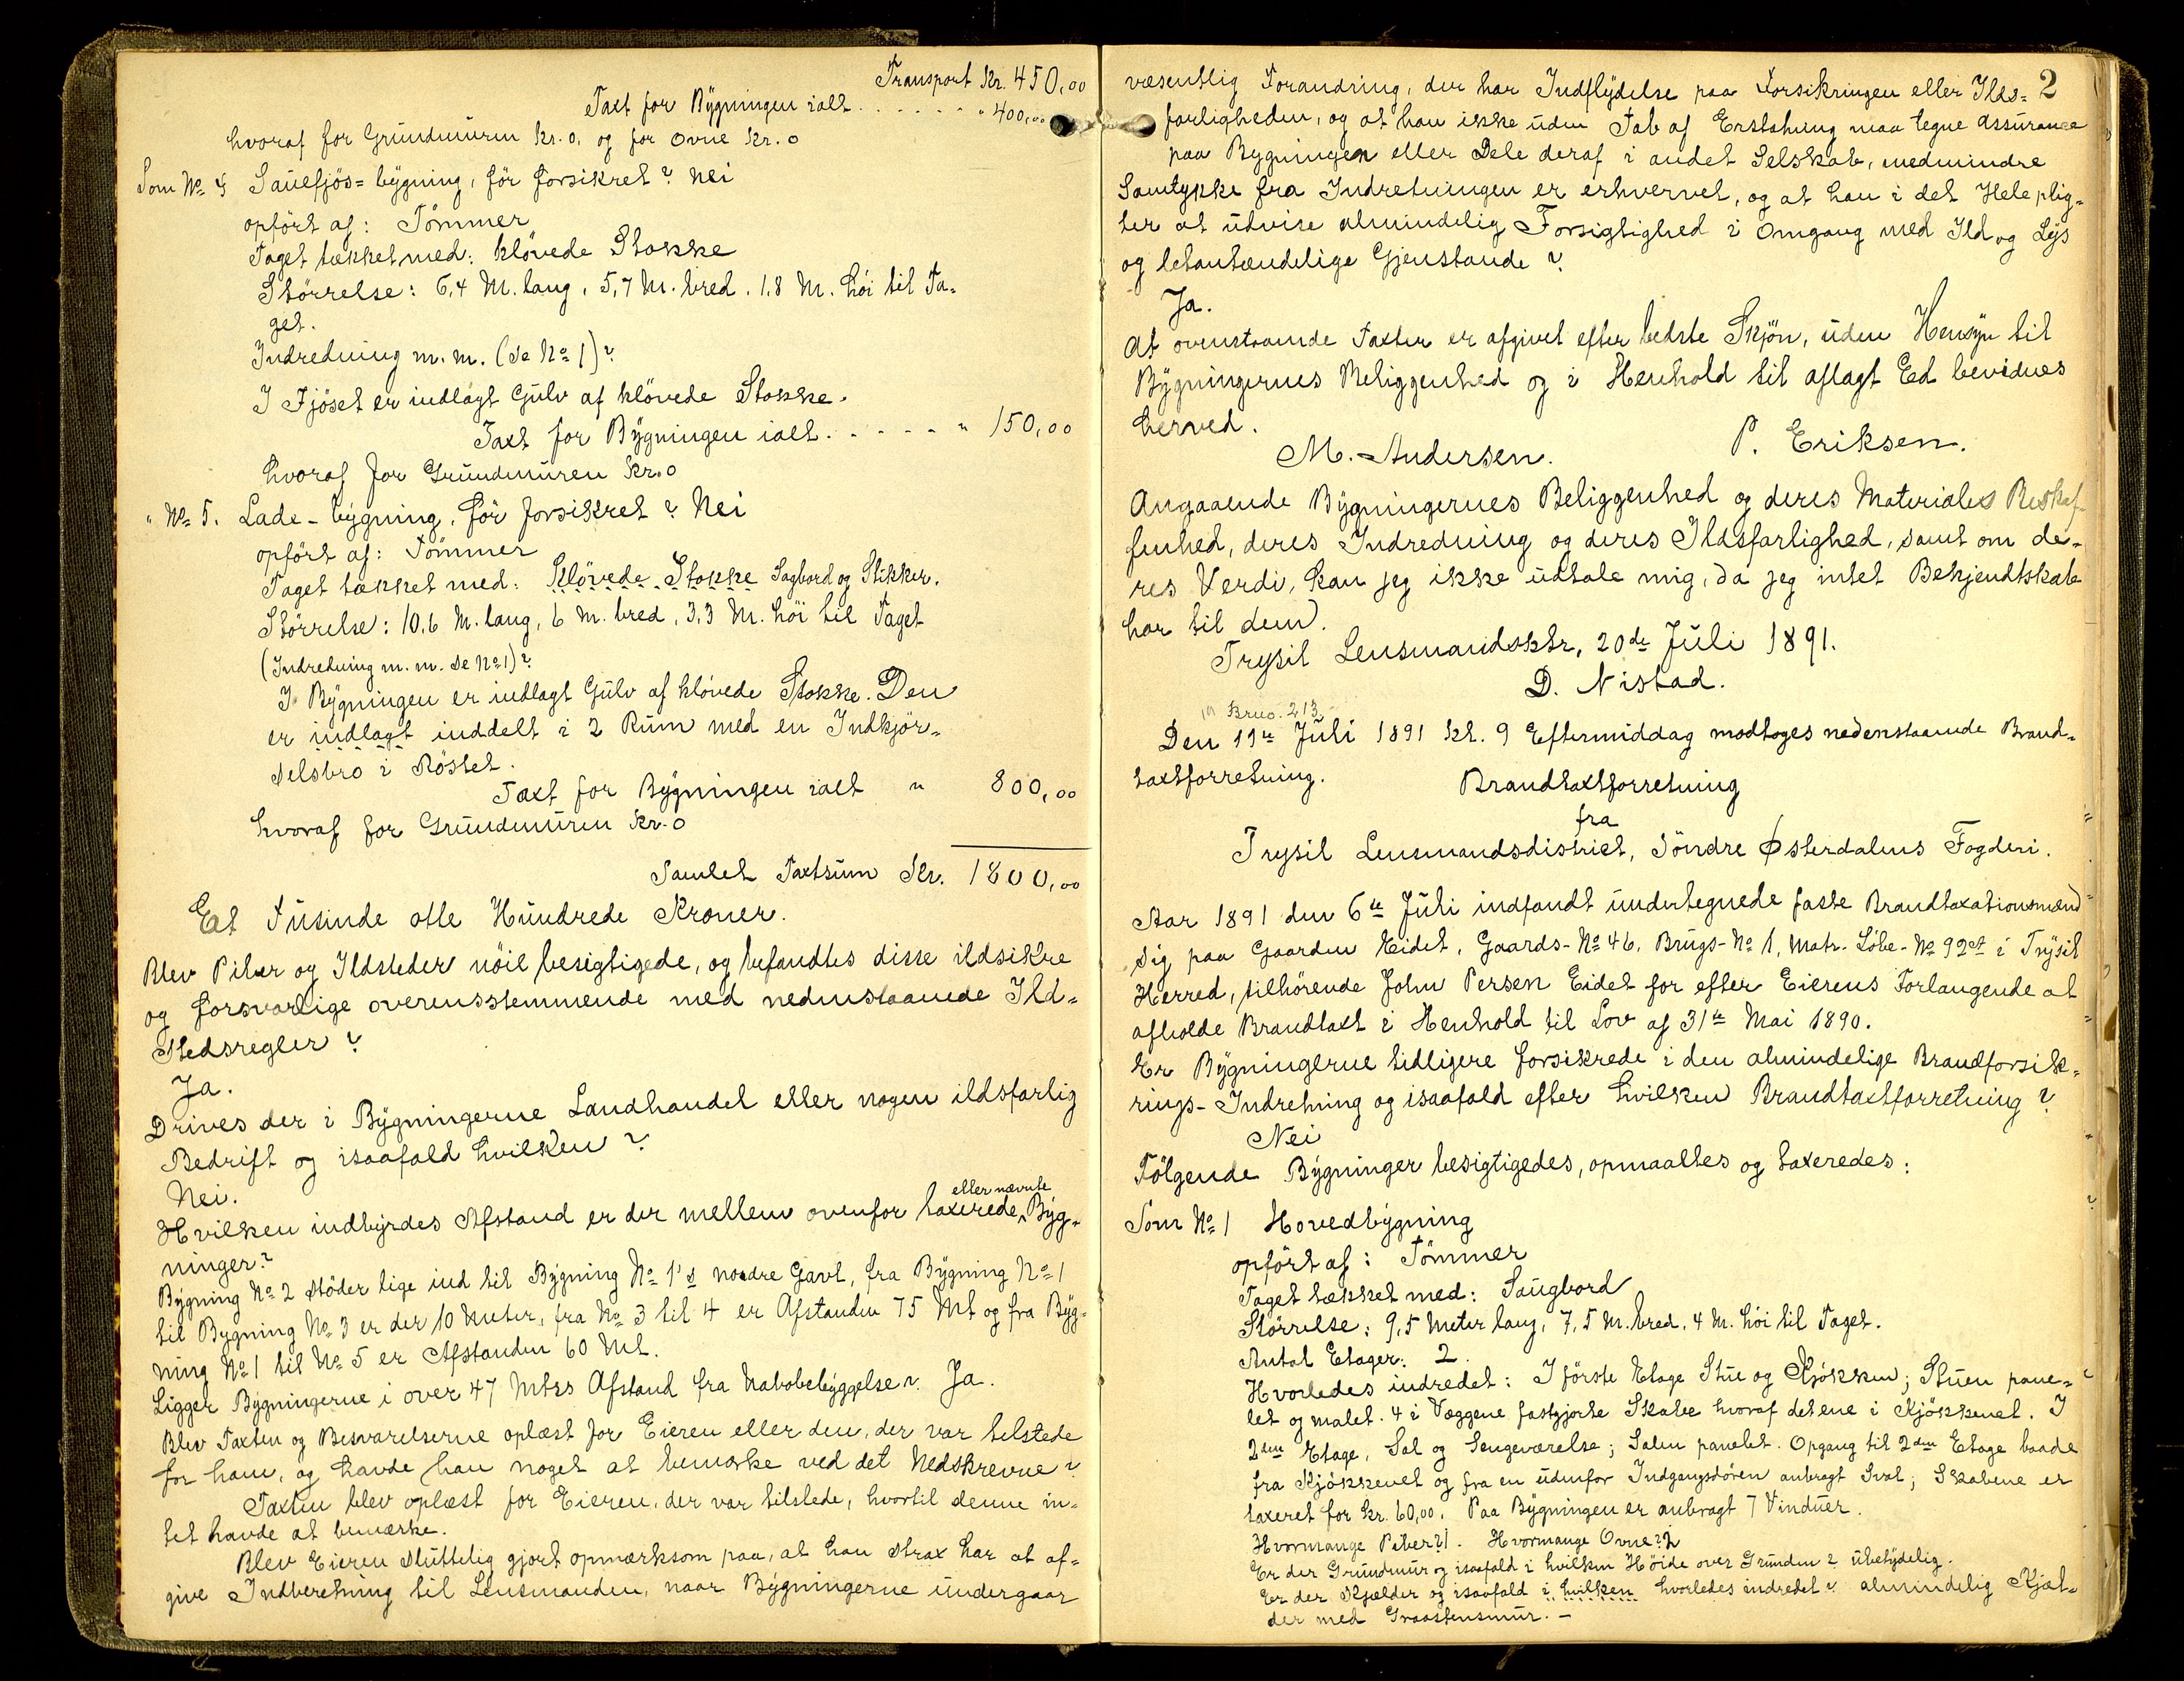 Transport Kr. 450,00
Taxt for Bÿgningen ialt . . . . . . . " 400,00
hvoraf for Grundmuren Kr. 0, og for Ovne Kr. 0
Som No 4 Sauefjös= bÿgning, för forsikret? Nei
opfört af: Tömmer
Taget tækket med: klövede Stokke
Störrelse: 6,4 M. lang, 5,7 M. bred. 1,8 M. höi til Ta-
get.
Indredning m. m. (se No 1)?
I Fjöset er indlagt Gulv af klövede Stokke.
Taxt for Bÿgningen ialt. . . . . . " 150,00
hvoraf for Grundmuren Kr. 0
" No 5. Lade-bÿgning, för forsikret? Nei
opfört af: Tömmer
Taget tækket med: Klövede Stokke Sagbord og Stikker.
Störrelse: 10,6 M. lang, 6 M. bred, 3,3 M. höi til Taget
(Indredning m. m. se No 1)?
I Bÿgningen er indlagt Gulv af klövede Stokke. Den
er indlagt inddelt i 2 Rum med en Indkjör-
selsbro i Röstet.
Taxt for Bÿgningen ialt " 800,00
hvoraf for Grundmuren Kr. 0
Samlet Taxtsum Kr. 1800,00
Et Tusinde otte Hundrede Kroner.
Blev Piber og Ildsteder nöie besigtigede, og befandtes disse ildsikre
og forsvarlige overensstemmende med nedenstaaende Ild-
stedsregler?
Ja.
Drives der i Bÿgningerne Landhandel eller nogen ildsfarlig
Bedrift og isaafald hvilken?
Nei.
eller nævnte
Hvilken indbÿrdes Afstand er der mellem ovenfor taxerede Bÿg-
ninger?
Bÿgning No 2 stöder lige ind til Bÿgning No 1's nordre Gavl, fra Bÿgning No 1
til Bygning No 3 er der 10 Meter, fra No 3 til 4 er Afstanden 75 Mt og fra Bÿg-
ning No 1 til No 5 er Afstanden 60 Mt.
Ligger Bÿgningerne i over 47 Mtrs Afstand fra Nabobebÿggelse? Ja.
Blev Taxten og Besvarelserne oplæst for Eieren eller den, der var tilstede
for ham, og havde han noget at bemærke ved det Nedskrevne?
Taxten blev oplæst for Eieren, der var tilstede, hvortil denne in-
tet havde at bemærke.
Blev Eieren sluttelig gjort opmærksom paa, at han strax har at af-
give Indberetning til Lensmanden, naar Bÿgningerne undergaar
2
væsentlig Forandring, der har Indflÿdelse paa Forsikringen eller Ilds=
farligheden, og at han ikke uden Tab af Erstatning maa tegne Assurance
paa Bygningen eller Dele deraf i andet Selskab, medmindre
Samtykke fra Indretningen er erhvervet, og at han i det Hele plig-
ter at udvise almindelig Forsigtighed i Omgang med Ild og Lÿs
og letantændelige Gjenstande?
Ja.
At ovenstaaende Taxter er afgivet efter bedste Skjön, uden Hensÿn til
Bÿgningernes Beliggenhed og i Henhold til aflagt Ed bevidnes
herved.
M. Andersen. P. Eriksen.
Angaaende Bÿgningernes Beliggenhed og deres Materiales Beskaf-
fenhed, deres Indredning og deres Ildsfarlighed, samt om de-
res Verdi, kan jeg ikke udtale mig, da jeg intet Bekjendtskab
har til dem.
Trysil Lensmandsktr, 20de Juli 1891.
D. Nistad.
Brno. 213
Den 11te Juli 1891 Kl. 9 Eftermiddag modtoges nedenstaaende Brand-
taxtforretning.
Brandtaxtforretning
fra
Trysil Lensmandsdistrict, Söndre Østerdalens Fogderi.
Aar 1891 den 6te Juli indfandt undertegnede faste Brandtaxationsmænd
sig paa Gaarden Eidet, Gaards-No 46, Brugs-No 1, Matr. Löbe-No 92 i Trÿsil
Herred, tilhörende John Persen Eidet for efter Eierens Forlangende at
afholde Brandtaxt i Henhold til Lov af 31te Mai 1890.
Er Bÿgningerne tidligere forsikrede i den almindelige Brandforsik-
rings-Indretning og isaafald efter hvilken Brandtaxtforretning?
Nei
Fölgende Bÿgninger besigtigedes, opmaaltes og taxeredes:
Som No 1 Hovedbÿgning
opfört af: Tömmer
Taget tækket med: Saugbord
Störrelse: 9,5 Meter lang, 7,5 M. bred, 4 M. höi til Taget.
Antal Etager: 2.
Hvorledes indredet: I förste Etage Stue og Kjökken; Stuen pane-
let og malet. 4 i Væggene fastgjorte Skabe hvoraf det ene i Kjökkenet. I
2den Etage, Sal og Sengeværelse; Salen panelet. Opgang til 2den Etage baade
fra Kjökkenet og fra en udenfor Indgangsdören anbragt Sval; Skabene er
taxeret for Kr. 60,00. Paa Bÿgningen er anbragt 7 Vinduer.
Hvormange Piber? 1. Hvormange Ovne? 2
Er der Grundmur og isaafald i hvilken Höide over Grunden? ubetÿdelig.
Er der Kjælder og isaafald i hvilken hvorledes indredet? almindelig Kjæl-
der med Graastensmur. –